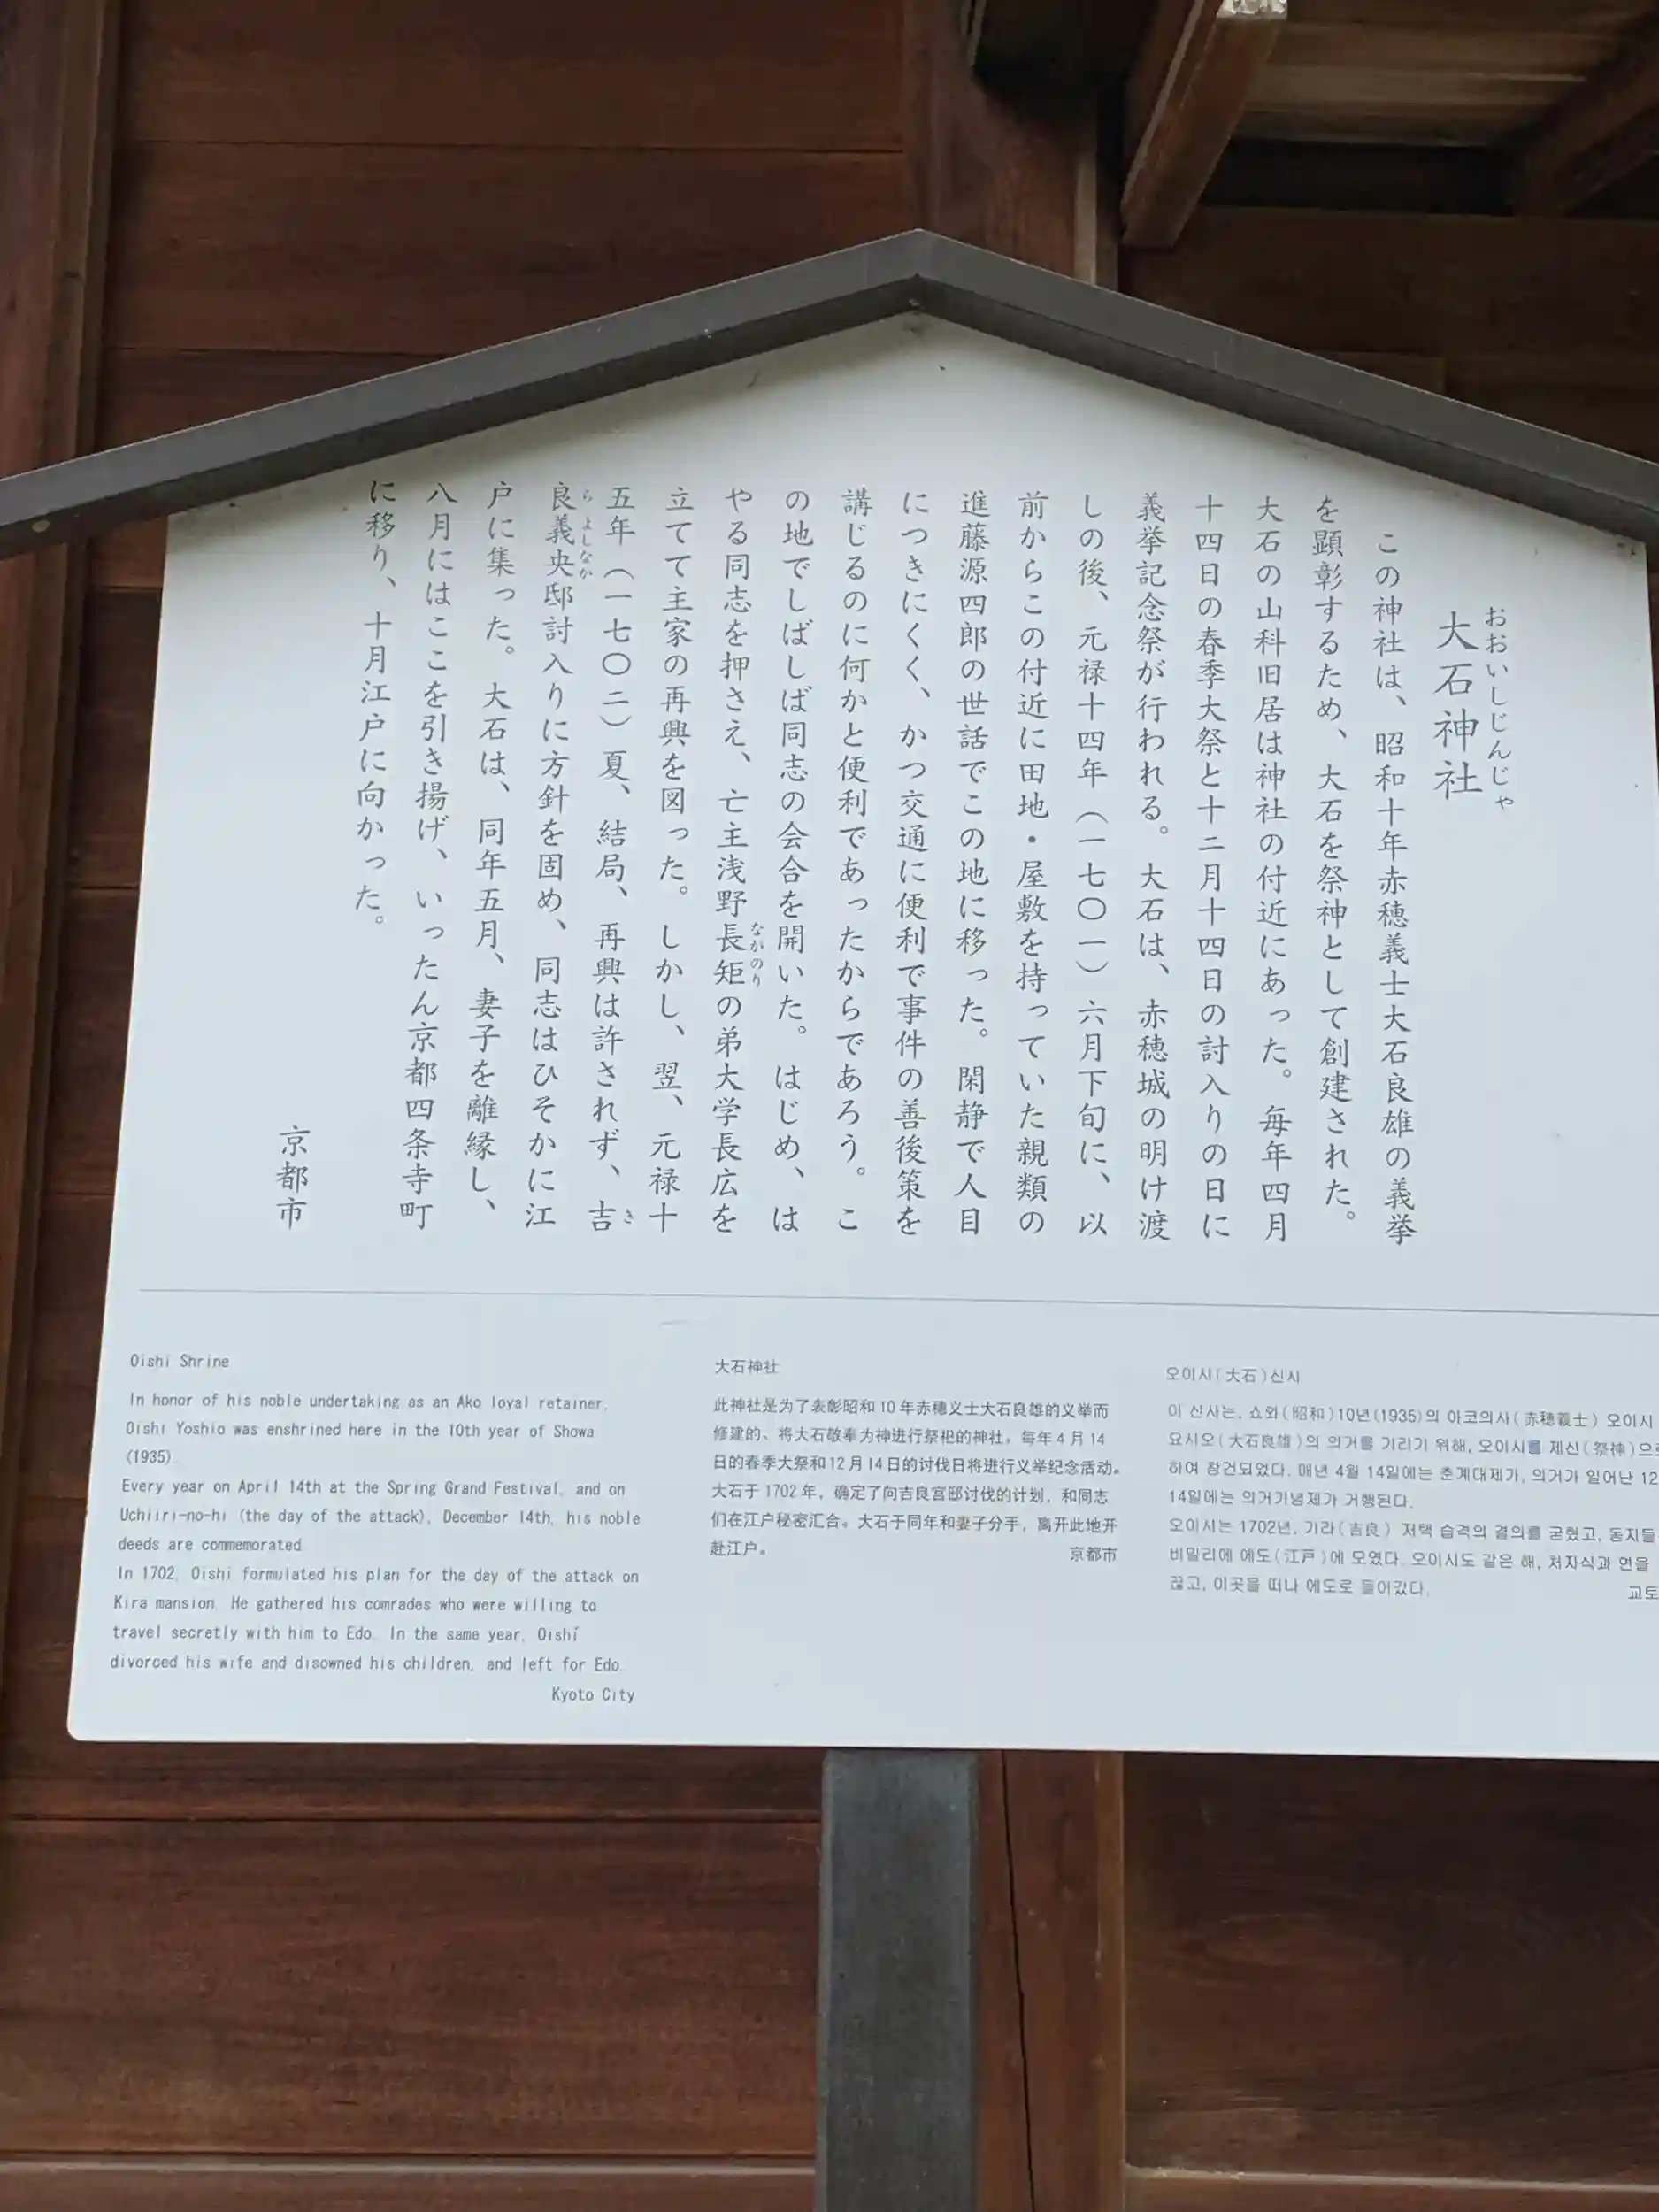 大石神社
おおいしじんじゃ
この神社は、昭和十年赤穂義士大石良雄の義挙
を顕彰するため、大石を祭神として創建された。
大石の山科旧居は神社の付近にあった。毎年四月
十四日の春季大祭と十二月十四日の討入りの日に
義挙記念祭が行われる。大石は、赤穂城の明け渡
しの後、元禄十四年（一七〇一）六月下旬に、以
前からこの付近に田地・屋敷を持っていた親類の
進藤源四郎の世話でこの地に移った。閑静で人目
につきにくく、かつ交通に便利で事件の善後策を
講じるのに何かと便利であったからであろう。こ
の地でしばしば同志の会合を開いた。はじめ、は
やる同志を押さえ、亡主浅野長矩の弟大学長広を
ながのり
立てて主家の再興を図った。しかし、翌、元禄十
五年（一七〇二）夏、結局、再興は許されず、吉
き
良義央邸討入りに方針を固め、同志はひそかに江
らよしなか
戸に集った。大石は、同年五月、妻子を離縁し、
八月にはここを引き揚げ、いったん京都四条寺町
に移り、十月江戸に向かった。
京都市
Oishi Shrine
In honor of his noble undertaking as an Ako loyal retainer,
Oishi Yoshio was enshrined here in the 10th year of Showa
(1935).
Every year on April 14th at the Spring Grand Festival, and on
Uchiiri-no-hi (the day of the attack), December 14th, his noble
deeds are commemorated.
In 1702, Oishi formulated his plan for the day of the attack on
Kira mansion. He gathered his comrades who were willing to
travel secretly with him to Edo. In the same year, Oishi
divorced his wife and disowned his children, and left for Edo.
Kyoto City
大石神社
此神社是为了表彰昭和10年赤穗义士大石良雄的义举而
修建的、将大石敬奉为神进行祭祀的神社。每年4月14
日的春季大祭和12月14日的讨伐日将进行义举纪念活动。
大石于1702年，确定了向吉良宫邸讨伐的计划，和同志
们在江户秘密汇合。大石于同年和妻子分手，离开此地开
赴江户。
京都市
오이시(大石)신시
이 신사는, 쇼와(昭和)10년(1935)의 아코의사(赤穂義士) 오이시
요시오(大石良雄)의 의거를 기리기 위해, 오이시를 제신(祭神)으로
하여 창건되었다. 매년 4월 14일에는 춘계대제가, 의거가 일어난 12
14일에는 의거기념제가 거행된다.
오이시는 1702년, 기라(吉良) 저택 습격의 결의를 굳혔고, 동지들
비밀리에 에도(江戸)에 모였다. 오이시도 같은 해, 처자식과 연을
끊고, 이곳을 떠나 에도로 들어갔다.
교토